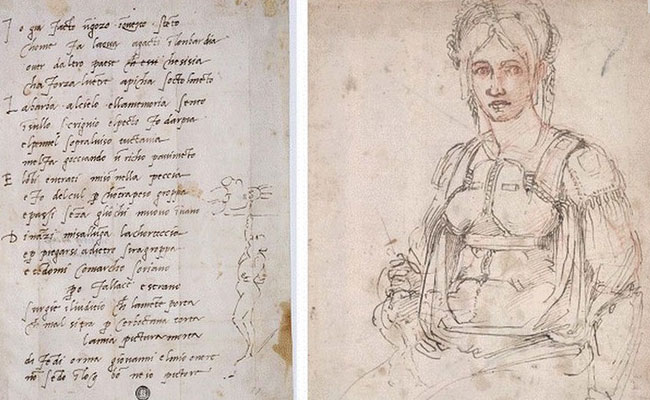 I o gia facto ngozo in questo stento
chome fa lacqua agacti i lombardia
over daltro paese che sisia
cha forza lvetre apicha socto lmeto
L a barba alcielo ellamemoria sento
i sullo scrignio elpecto fo darpia
elpennel sopraluiso tuctavia
melfa gocciando u richo pavimeto
E lobi entrati miso nella peccia
e fo delcul p chotrapeso groppa
e passi seza gliochi muovo inuano
D inazi misalluga lachorteccia
e p piegarsi adietro siragroppa
e tedomi comarcho soriano
po fallace e strano
surgie iluditio ch lamete porta
ch mal si tra p cerboctana torta
lamia pictura morta
di fedi orma giovanni elmio onore
no sedo ilog bo ne io pictore